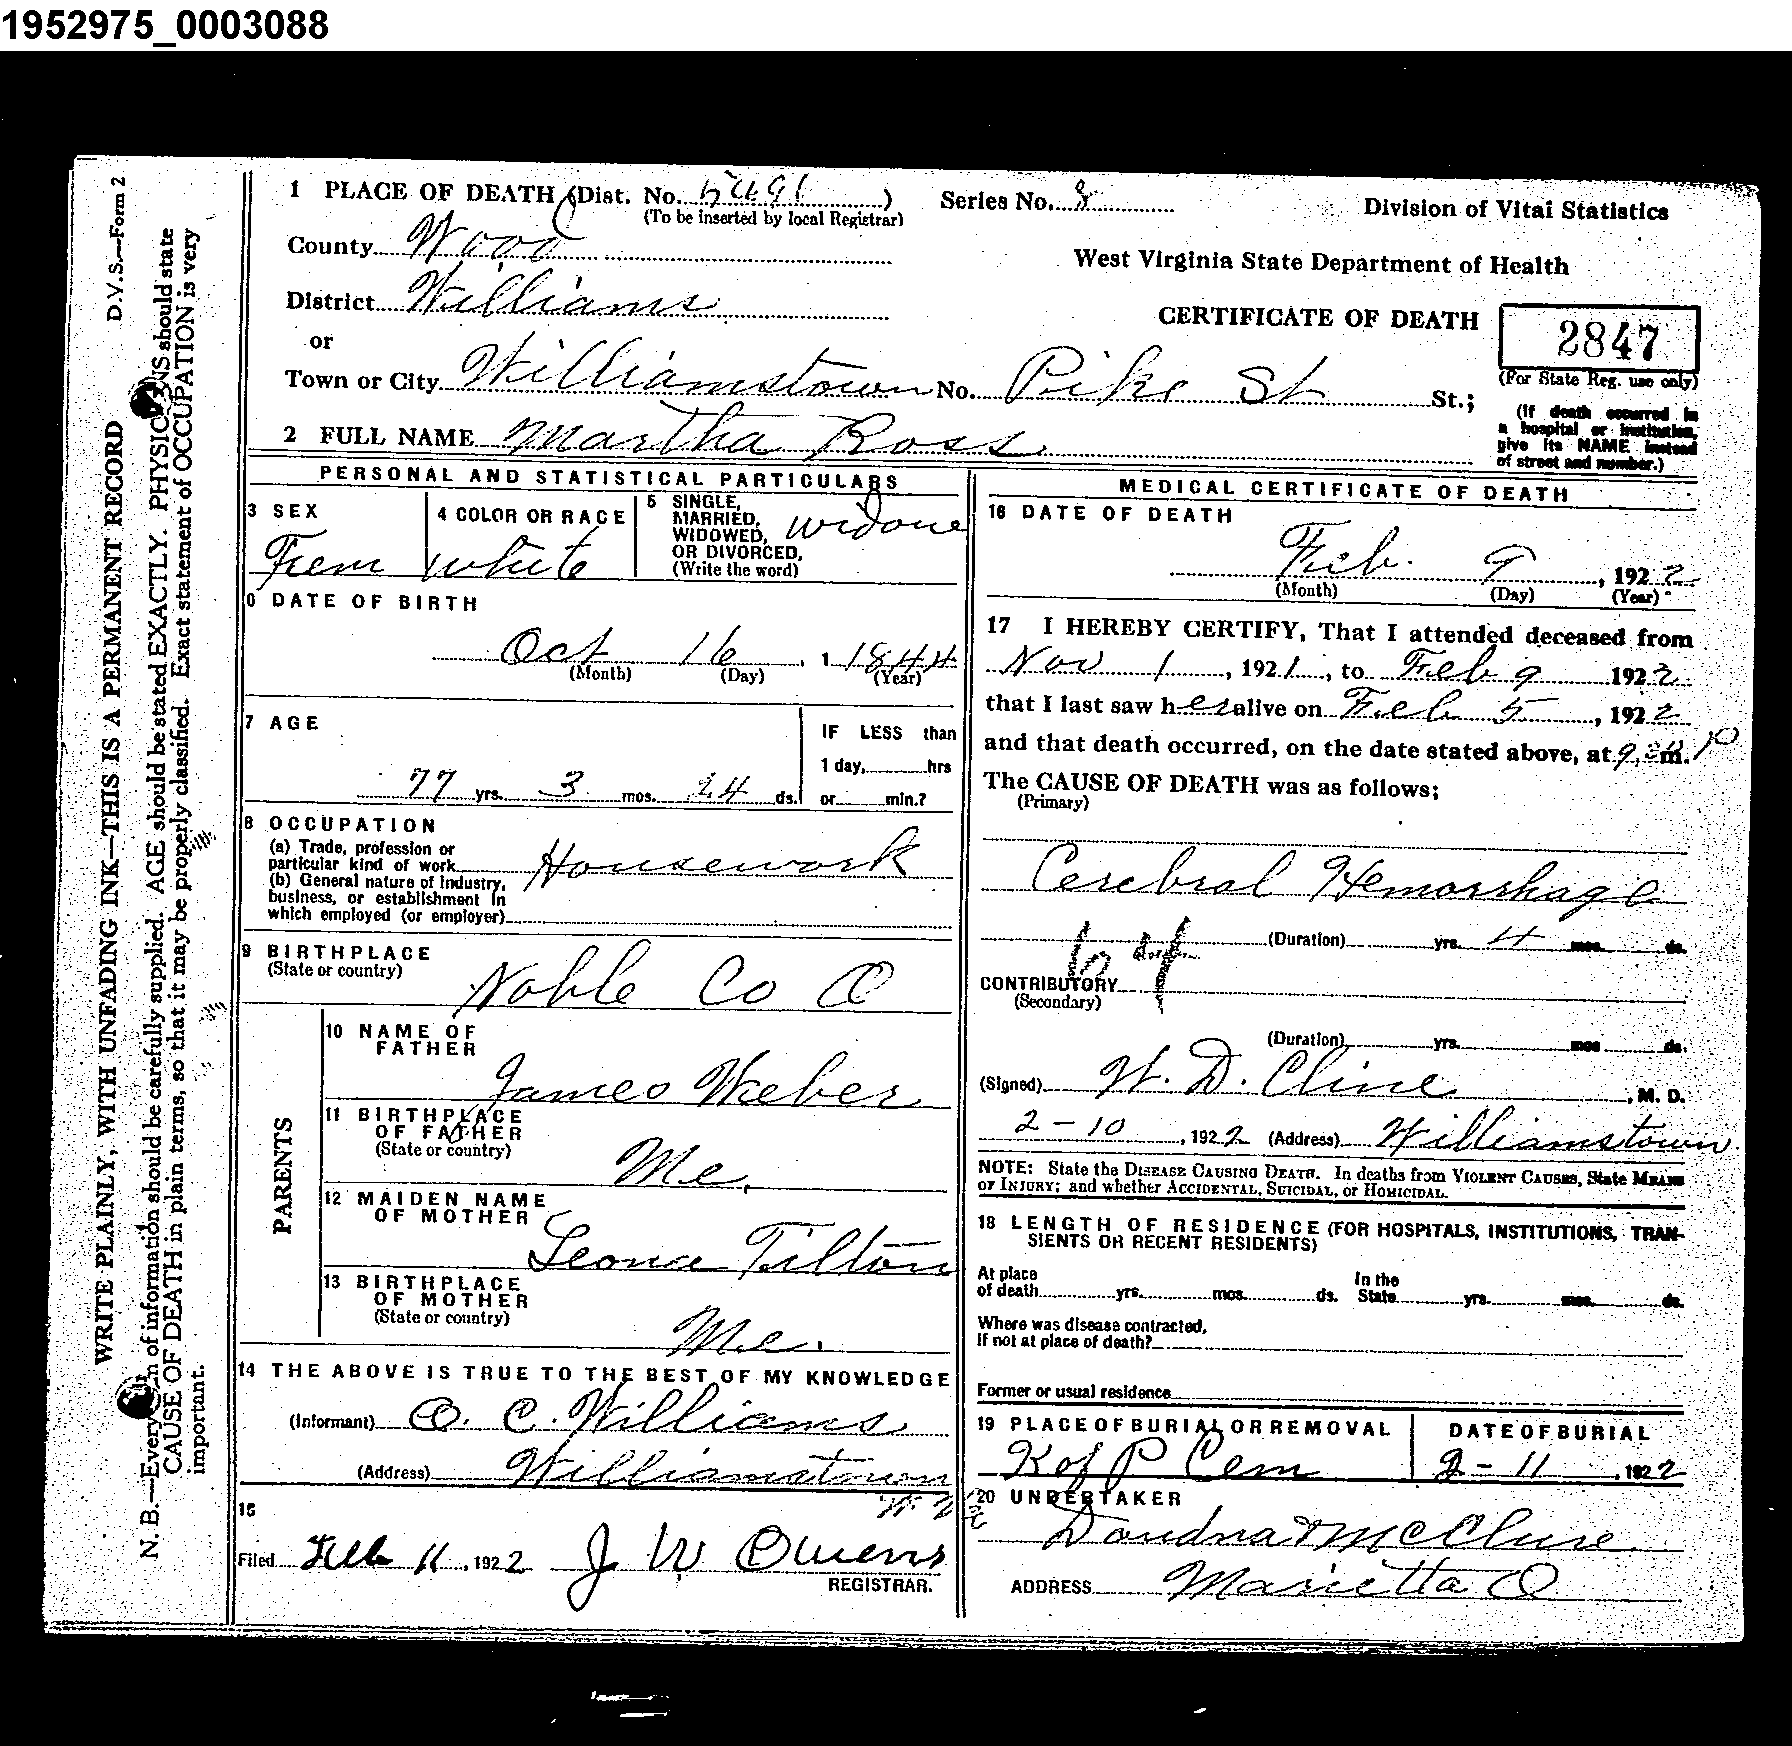 1952975_0003088
D.V.S.—Form 2
WRITE PLAINLY, WITH UNFADING INK—THIS IS A PERMANENT RECORD
N. B.—Every item of information should be carefully supplied. AGE should be stated EXACTLY. PHYSICIANS should state
CAUSE OF DEATH in plain terms, so that it may be properly classified. Exact statement of OCCUPATION is very
important.
1 PLACE OF DEATH (Dist. No. 5491 )
(To be inserted by local Registrar)
Series No. 8
Division of Vital Statistics
County Wood
West Virginia State Department of Health
District Williams
CERTIFICATE OF DEATH
2847
(For State Reg. use only)
or
Town or City Williamstown No. Pike St St.;
(If death occurred in
a hospital or institution,
give its NAME instead
of street and number.)
2 FULL NAME Martha Ross
PERSONAL AND STATISTICAL PARTICULARS
3 SEX
Fem
4 COLOR OR RACE
White
5 SINGLE,
MARRIED,
WIDOWED,
OR DIVORCED,
(Write the word)
widow
6 DATE OF BIRTH
Oct 16, 1 1844
(Month) (Day) (Year)
7 AGE
77 yrs. 3 mos. 24 ds.
IF LESS than
1 day, hrs
or min.?
8 OCCUPATION
(a) Trade, profession or
particular kind of work Housework
(b) General nature of industry,
business, or establishment in
which employed (or employer)
9 BIRTHPLACE
(State or country)
Noble Co O
PARENTS
10 NAME OF
FATHER
James Weber
11 BIRTHPLACE
OF FATHER
(State or country)
Me.
12 MAIDEN NAME
OF MOTHER
Leona Tilton
13 BIRTHPLACE
OF MOTHER
(State or country)
Me.
14 THE ABOVE IS TRUE TO THE BEST OF MY KNOWLEDGE
(Informant) O. C. Williams
(Address) Williamstown
15
Filed Feb 11, 1922 J W Owens
REGISTRAR.
MEDICAL CERTIFICATE OF DEATH
16 DATE OF DEATH
Feb. 9, 1922
(Month) (Day) (Year)
17 I HEREBY CERTIFY, That I attended deceased from
Nov 1, 1921, to Feb 9 1922
that I last saw her alive on Feb 5, 1922
and that death occurred, on the date stated above, at m. P
The CAUSE OF DEATH was as follows:
(Primary)
Cerebral Hemorrhage
(Duration) yrs. 4 mos. ds.
CONTRIBUTORY
(Secondary)
(Duration) yrs. mos ds.
(Signed) W. D. Cline, M. D.
2-10, 1922 (Address) Williamstown
NOTE: State the DISEASE CAUSING DEATH. In deaths from VIOLENT CAUSES, State MEANS
OF INJURY; and whether ACCIDENTAL, SUICIDAL, or HOMICIDAL.
18 LENGTH OF RESIDENCE (FOR HOSPITALS, INSTITUTIONS, TRAN-
SIENTS OR RECENT RESIDENTS)
At place
of death yrs. mos. ds.
In the
State yrs. mos. ds.
Where was disease contracted,
if not at place of death?
Former or usual residence
19 PLACE OF BURIAL OR REMOVAL
K of P Cem
DATE OF BURIAL
2-11, 1922
20 UNDERTAKER
Doudna & McClure
ADDRESS Marietta O